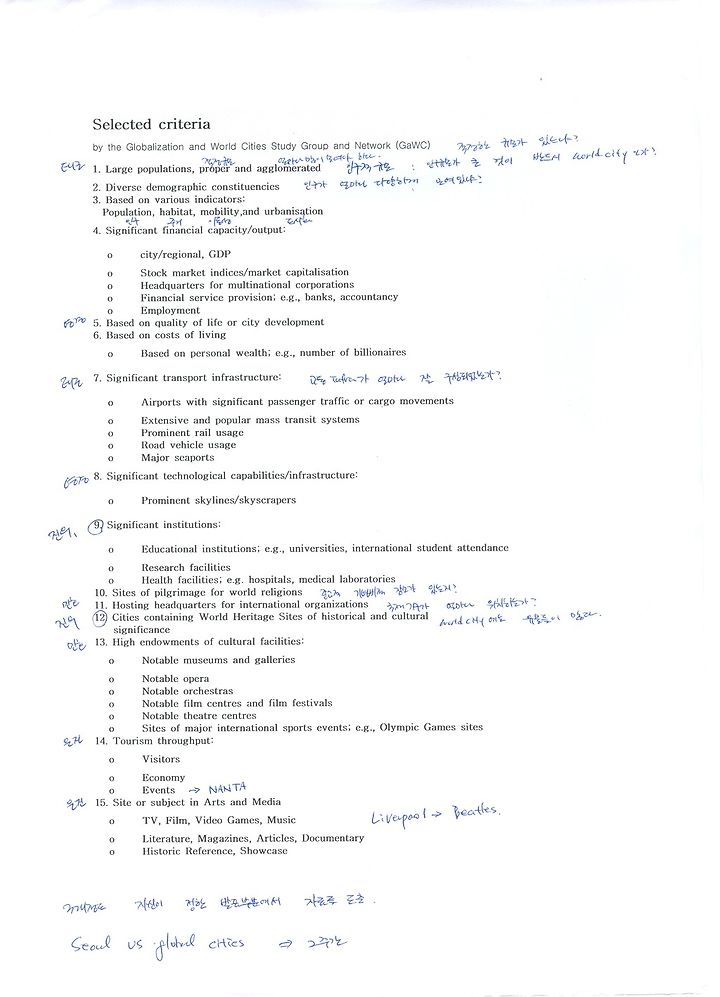 Selected criteria
by the Globalization and World Cities Study Group and Network (GaWC) 적정한 규모가 있느냐?
적정규모 얼마나 많이 모여야 하나.
1. Large populations, proper and agglomerated 인구적 규모 : 인구규모가 큰 것이 반드시 world city 인가?
2. Diverse demographic constituencies 인구가 얼마나 다양하게 모여있나?
3. Based on various indicators:
Population, habitat, mobility,and urbanisation
인구 주거 이동성 도시화
4. Significant financial capacity/output:
o city/regional, GDP
o Stock market indices/market capitalisation
o Headquarters for multinational corporations
o Financial service provision; e.g., banks, accountancy
o Employment
5. Based on quality of life or city development
6. Based on costs of living
o Based on personal wealth; e.g., number of billionaires
7. Significant transport infrastructure: 교통 가 얼마나 잘 구성되있는가?
o Airports with significant passenger traffic or cargo movements
o Extensive and popular mass transit systems
o Prominent rail usage
o Road vehicle usage
o Major seaports
8. Significant technological capabilities/infrastructure:
o Prominent skylines/skyscrapers
9. Significant institutions:
o Educational institutions; e.g., universities, international student attendance
o Research facilities
o Health facilities; e.g. hospitals, medical laboratories
10. Sites of pilgrimage for world religions 종교적 장소가 있는지?
11. Hosting headquarters for international organizations 국제기구가 얼마나 위치하는가?
12. Cities containing World Heritage Sites of historical and cultural world city 에는 유물들이 많다.
significance
13. High endowments of cultural facilities:
o Notable museums and galleries
o Notable opera
o Notable orchestras
o Notable film centres and film festivals
o Notable theatre centres
o Sites of major international sports events; e.g., Olympic Games sites
14. Tourism throughput:
o Visitors
o Economy
o Events → NANTA
15. Site or subject in Arts and Media
o TV, Film, Video Games, Music Liverpool → Beatles.
o Literature, Magazines, Articles, Documentary
o Historic Reference, Showcase
자신이 정한 발표부분에서 자료
Seoul vs global cities ⇒ 2주간